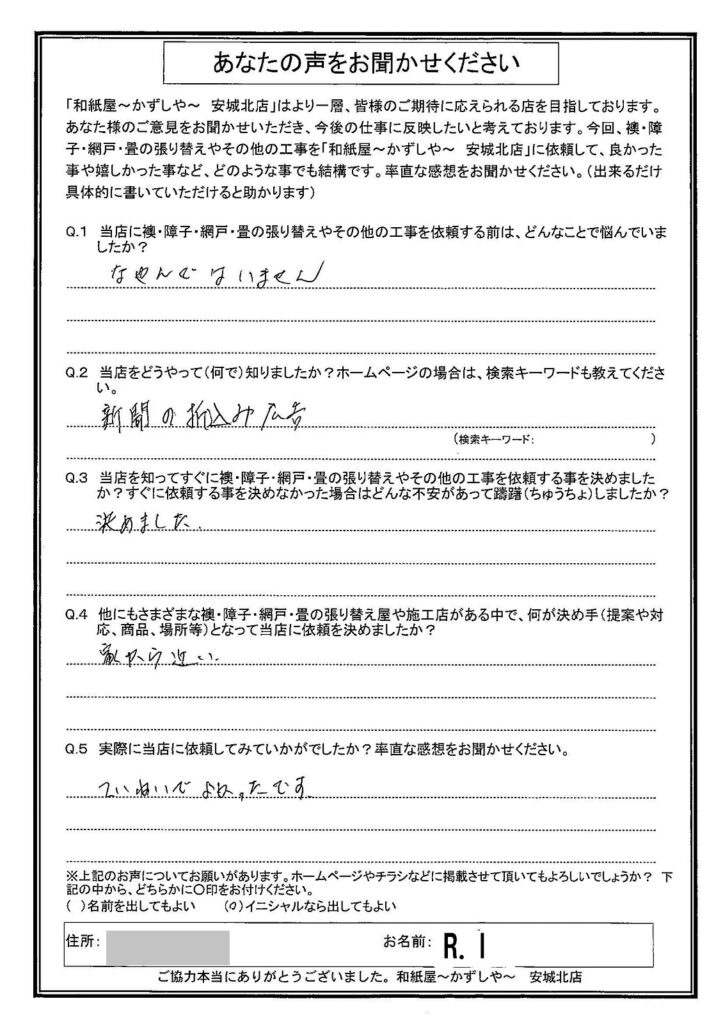 あなたの声をお聞かせください
「和紙屋～かずしや～　安城北店」はより一層、皆様のご期待に応えられる店を目指しております。
あなた様のご意見をお聞かせいただき、今後の仕事に反映したいと考えております。今回、襖・障
子・網戸・畳の張り替えやその他の工事を「和紙屋～かずしや～　安城北店」に依頼して、良かった
事や嬉しかった事など、どのような事でも結構です。率直な感想をお聞かせください。（出来るだけ
具体的に書いていただけると助かります）
Q.1　当店に襖・障子・網戸・畳の張り替えやその他の工事を依頼する前は、どんなことで悩んでいま
したか？
なやんではいません
Q.2　当店をどうやって（何で）知りましたか？ホームページの場合は、検索キーワードも教えてくださ
い。
新聞の折込み広告
（検索キーワード：　　　　　　　　）
Q.3　当店を知ってすぐに襖・障子・網戸・畳の張り替えやその他の工事を依頼する事を決めました
か？すぐに依頼する事を決めなかった場合はどんな不安があって躊躇（ちゅうちょ）しましたか？
決めました.
Q.4　他にもさまざまな襖・障子・網戸・畳の張り替え屋や施工店がある中で、何が決め手（提案や対
応、商品、場所等）となって当店に依頼を決めましたか？
家から近い.
Q.5　実際に当店に依頼してみていかがでしたか？率直な感想をお聞かせください。
ていねいでよかったです
※上記のお声についてお願いがあります。ホームページやチラシなどに掲載させて頂いてもよろしいでしょうか？　下
記の中から、どちらかに〇印をお付けください。
（　）名前を出してもよい　　（〇）イニシャルなら出してもよい
住所：　　お名前：　R. I
ご協力本当にありがとうございました。和紙屋～かずしや～　安城北店